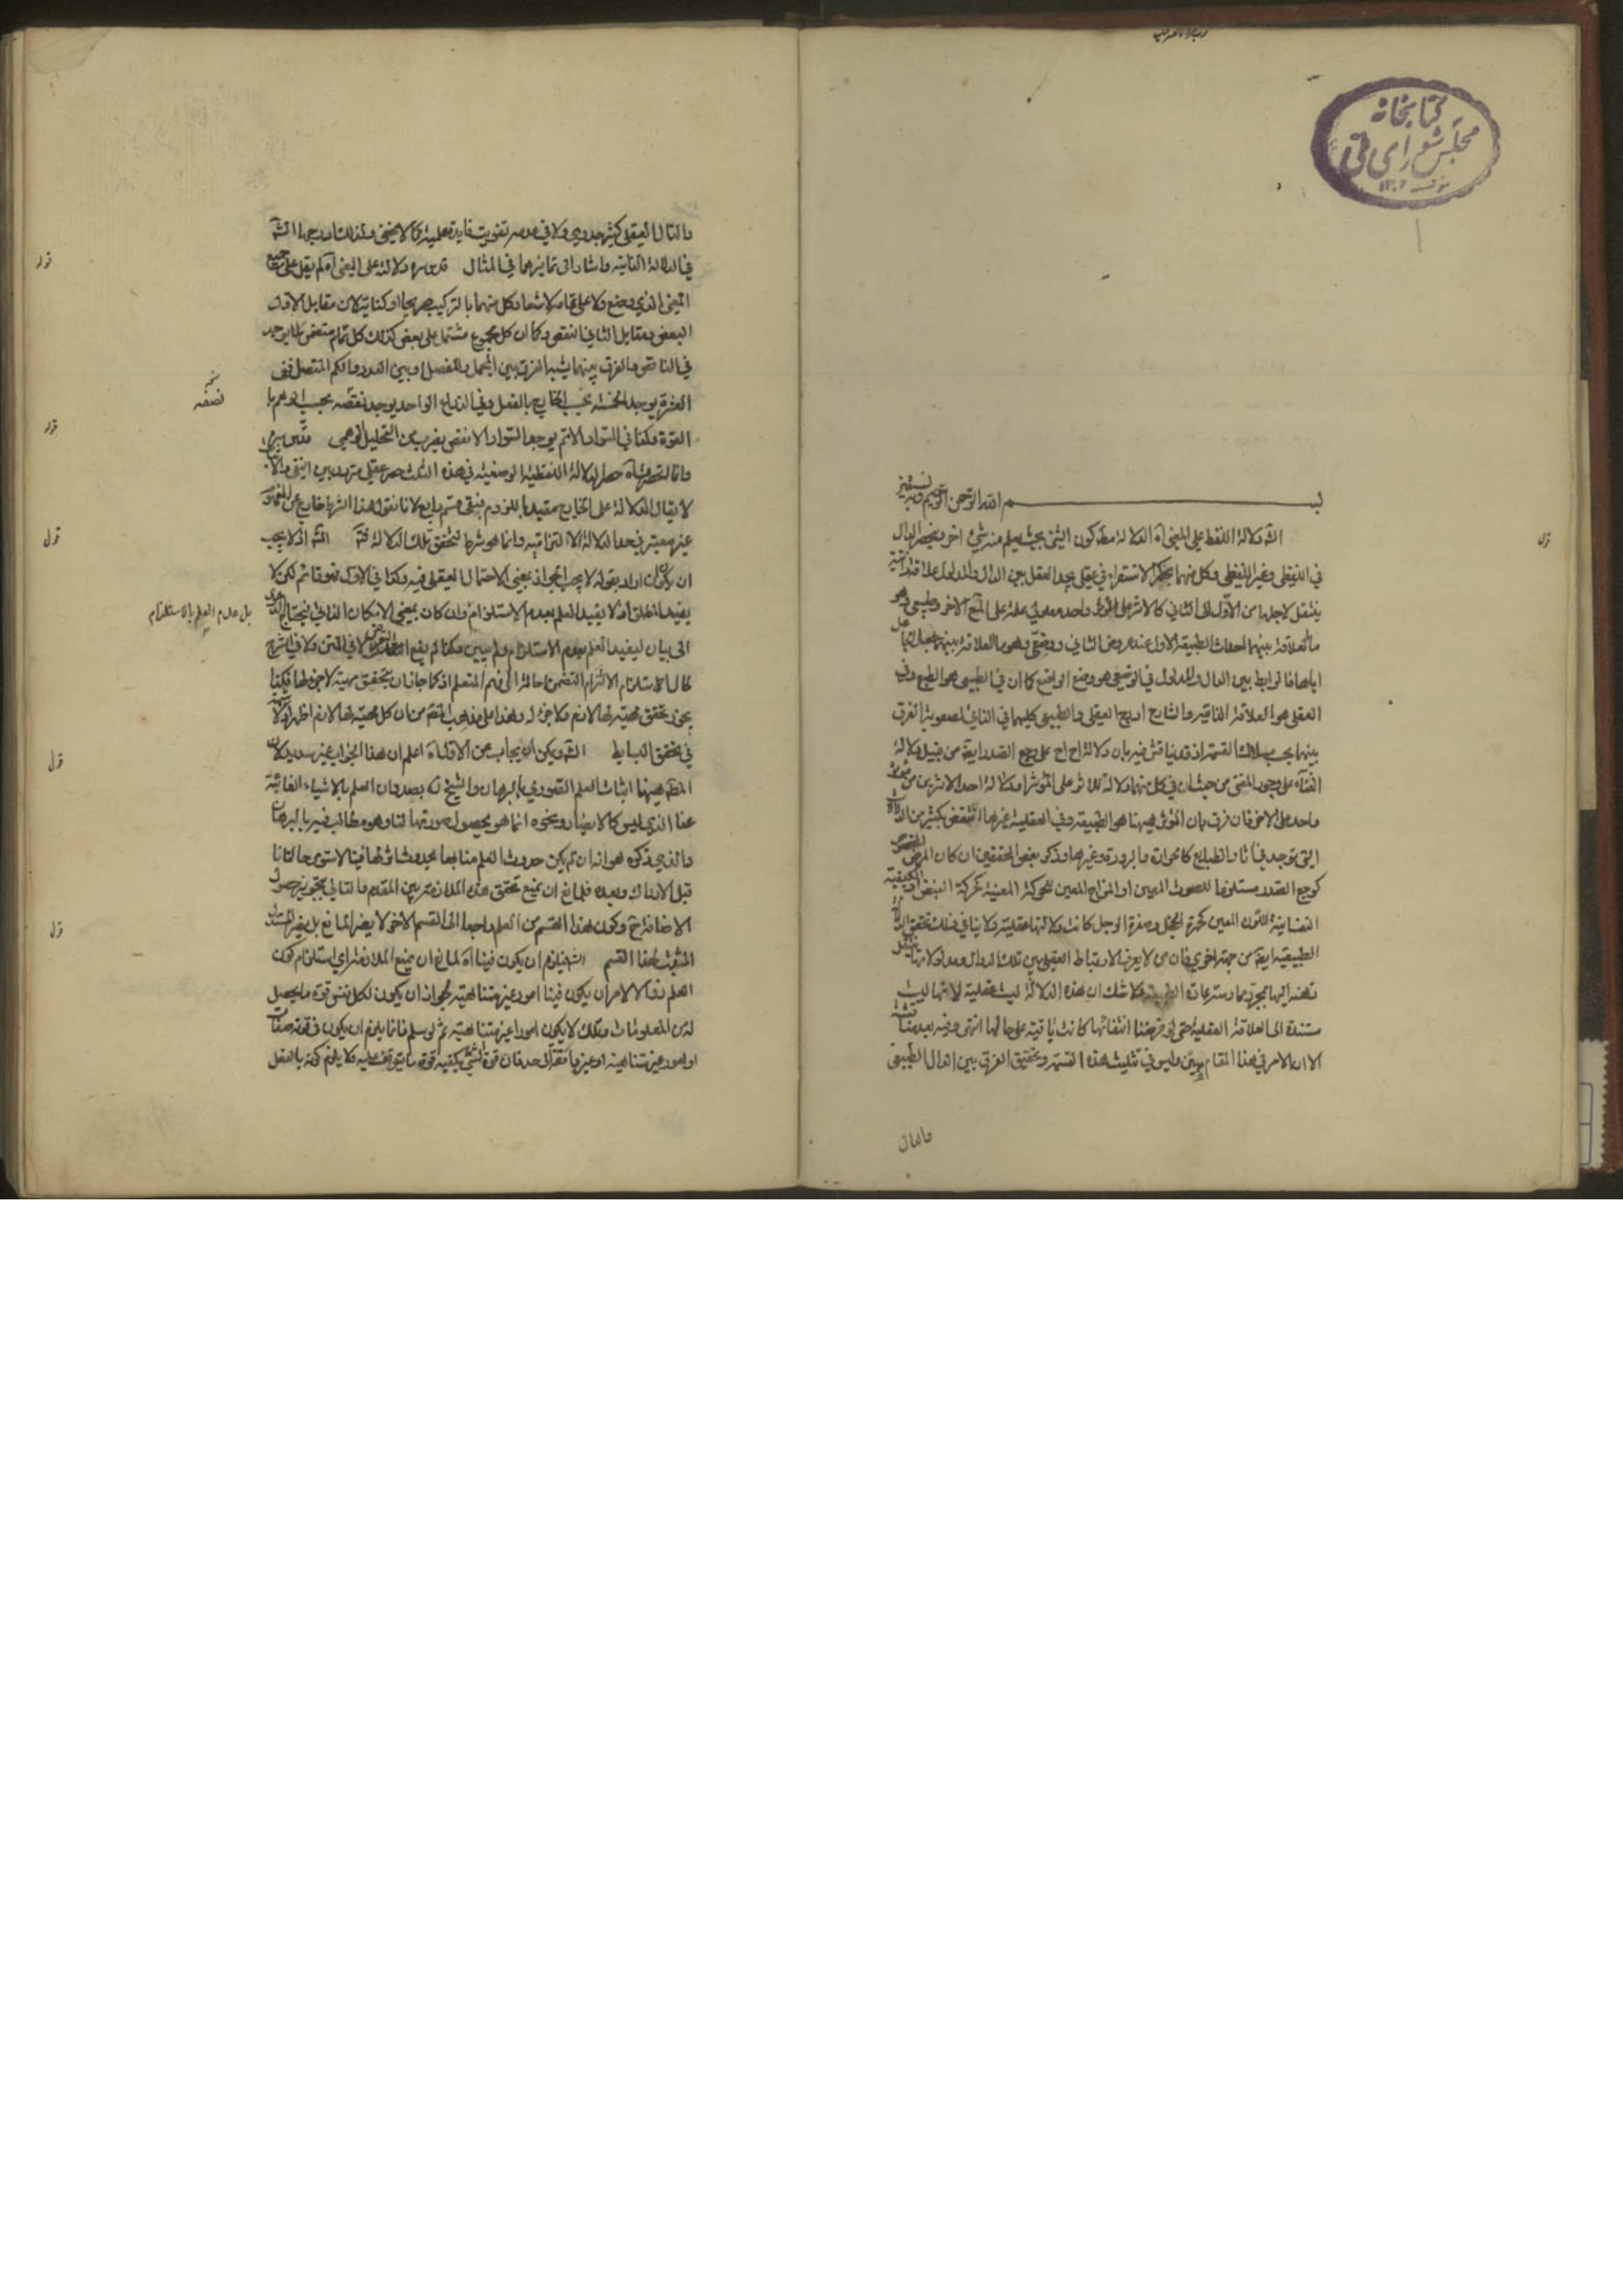 كتابخانه
مجلس شورای ملی
١٣٠٢
بسم الله الرحمن الرحيم وبه نستعين
قوله دلالة اللفظ على المعنى آه الدلالة مطلقا كون الشئ بحيث يعلم منه شئ اخر وينحصر الدال
في اللفظي وغير اللفظي وكل منهما بحكم الاستقراء في عقلي يجد العقل بين الدال والمدلول علاقة ذاتية
ينتقل لاجلها من الاول الى الثاني كالاثر على المؤثر واحد معلولي علة على الاخر وطبيعي وهو
ما العلاقة بينهما احداث الطبيعة الاول عند عروض الثاني ووضعي وهو ما العلاقة بينهما جعل جاعل
اياهما فالرابط بين الدال والمدلول في الوضعي هو وضع الواضع كما ان في الطبيعي هو الطبع وفي
العقلي هو العلاقة الذاتية والشارح ادرج العقلي والطبيعي كليهما في الثاني لصعوبة الفرق
بينهما بحسب تلك القسمة اذ قد يناقش فيه بان دلالة اح اح على وجع الصدر ايضا من قبيل دلالة
الغناء على وجود المغني من حيث ان في كل منهما دلالة للاثر على المؤثر او دلالة احد الاثرين من مؤثر
واحد على الاخر فان فرق بان المؤثر ههنا هو الطبيعة وفي العقلية غيرها انتقض بكثير من الدلالات
التي توجد في اثار الطبايع كالحرارة والبرودة وغيرها وذكر بعض المحققين ان كان المرض المخصوص
كوجع الصدر مستلزما للصوت المعين او المزاج المعين للحركة المعينة كحركة النبض او الكيفية
النفسانية للون المعين كحمرة الخجل وصفرة الوجل كانت دلالتها عقلية ولا ينافي ذلك تحقق الدلالة
الطبيعية ايضا من جهة اخرى فان من لا يعرف الارتباط العقلي بين تلك الدوال ومدلولاتها ينتقل
ذهنه اليها بمجرد ممارسة عادة الطبيعة فلا شك ان هذه الدلالة ليست عقلية لانها ليست
مستندة الى العلاقة العقلية حتى لو فرضنا انتفائها كانت باقية على حالها انتهى وفيه بعد مناقشة
الا ان الامر في هذا المقام هين وليس في تثليث هذه القسمة وتحقيق الفرق بين الدال الطبيعي
والدال
قوله
والدال العقلي كثير جدوى ولا في عدمه تفويت فايدة علمية كما لا يخفى ولذلك ادرجها الشارح
في الدلالة الثانية واشار الى تمايزهما في المثال قدس سره دلالته على المعنى آه لم يقل على جميع
المعنى الذي وضع ولا على تمام لاشعار كل منهما بالتركيب صريحا او كناية لان مقابل الاول
البعض ومقابل الثاني النقص وكما ان كل مجموع مشتمل على بعض كذلك كل تمام متضمن لما يوجد
في الناقص والفرق بينهما يشبه الفرق بين المجمل والمفصل او بين العدد والكم المتصل ففي
العشرة يوجد الخمسة بحسب الخارج بالفعل وفي الذراع الواحد يوجد نقصه بحسب الوهم بل
القوة وكذا في السواد الاتم يوجد السواد الانقص بضرب من التحليل الوهمي قدس سره
وانما انحصرت آه حصر الدلالة اللفظية الوضعية في هذه الثلث حصر عقلي متردد بين النفي والاثبات
لا يقال الدلالة على الخارج مقيدة باللزوم فبقي قسم رابع لانا نقول هذا الشرط خارج عن المفهوم
غير معتبر في حد الدلالة الالتزامية وانما هو شرط لتحقق تلك الدلالة قوله الشه اذ لا يجب
ان يكون ان اراد بقوله لا يجب الجواز بمعنى الاحتمال العقلي فيه وكذا في الاول فهو قائم لكن لا
يفيد المطلق اذ لا يفيد العلم بعدم الاستلزام وان كان بمعنى الامكان الذاتي فيحتاج
الى بيان ليفيد العلم بعدم الاستلزام ولم يبين وكذا لم يقع التعرض لا في المتن ولا في الشرح
لحال استلزام الالتزام التضمن احالة الى فهم المتعلم اذ كما جاز ان يتحقق مهية لا جزء لها فكذا
يجوز تحقق مهية لها لازم ولا جزء له وهذا على مذهب القوم من ان كل مهية لها لازم اظهر
في تحقق البسايط الشه ويمكن ان يجاب عن الاول آه اعلم ان هذا الجواب غير سديد لان
المط ههنا اثبات العلم التصوري بالبرهان والشيخ بصدد ان العلم بالاشياء الغائبة
عنا الذي ليس كالابصار ونحوه انما هو بحصول صورتها لنا وهو مطالب فيه بالبرهان
والذي ذكره هو انه ان لم يكن حدوث العلم منا بعد بحدوث اثر لها فينا لاستوى حالتانا
قبل الادراك وبعده فللمانع ان يمنع تحقق هذه الملازمة بين المقدم والتالي بتجويز حصول
الاضافة اح وكون هذا القسم من العلم راجعا الى القسم الاخر لا يضر المانع بل يضر المستدل
المثبت لهذا القسم الشه فيلزم ان يكون فينا آه للمانع ان يمنع الملازمة اي استلزام كون
العلم زوال الامر ان يكون فينا امور غير متناهية لجواز ان يكون لكل نفس قوة ما يحصل
له من المعلومات وتلك لا يكون امورا غير متناهية ثم لو سلم فانما يلزم ان يكون في قوته صفات
او امور غير متناهية او غير واقفة الى حد فان قوة الشئ يكفيه قوة ما يتوقف عليه ولا يلزم كونه بالفعل
قوله
نسخه
نصفه
قوله
قوله
بل عدم العلم بالاستلزام
قوله
قوله